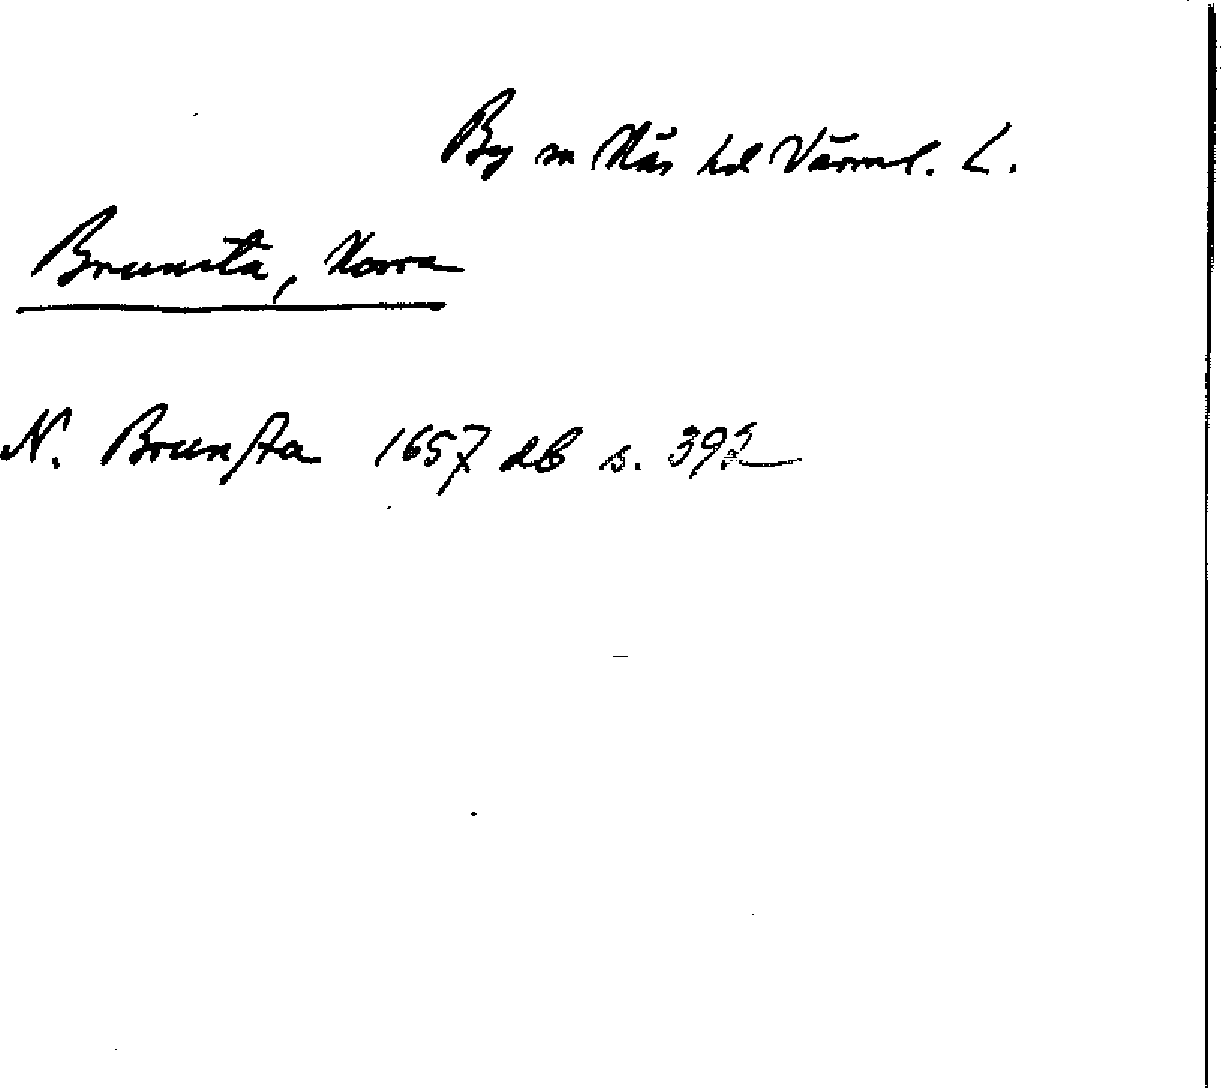 By sn Näs hd Värml. L.
Brunsta, Norra
N. Brunsta 1657 db s. 392